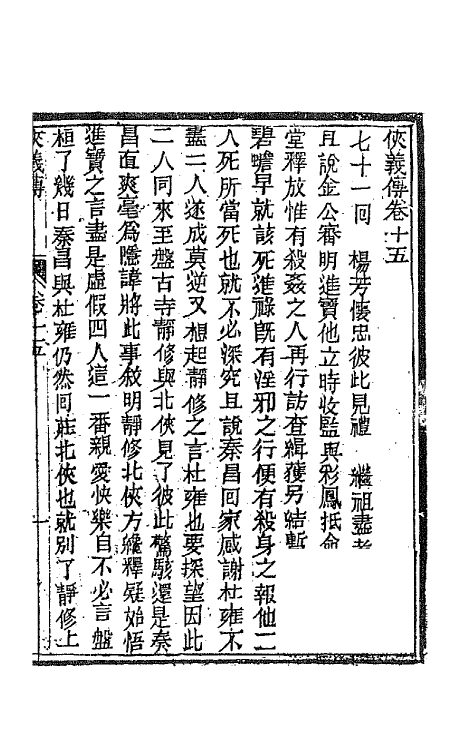 俠義傳卷十五
七十一回　楊芳懷忠彼此見禮　繼祖盡孝
且說金公審明進寶他立時收監與彩鳳抵命
堂釋放惟有殺姦之人再行訪查緝獲另結暫
碧蟾早就該死進祿旣有淫邪之行便有殺身之報他二
人死所當死也就不必深究且說秦昌囘家感謝杜雍不
盡二人遂成莫逆又想起靜修之言杜雍也要探望因此
二人同來至盤古寺靜修與北俠見了彼此驚駭還是秦
昌直爽毫爲隱諱將此事敘明靜修北俠方纔釋疑始悟
進寶之言盡是虛假四人這一番親愛快樂自不必言盤
桓了幾日秦昌與杜雍仍然囘莊北俠也就別了靜修上
俠義傳　卷十五　一